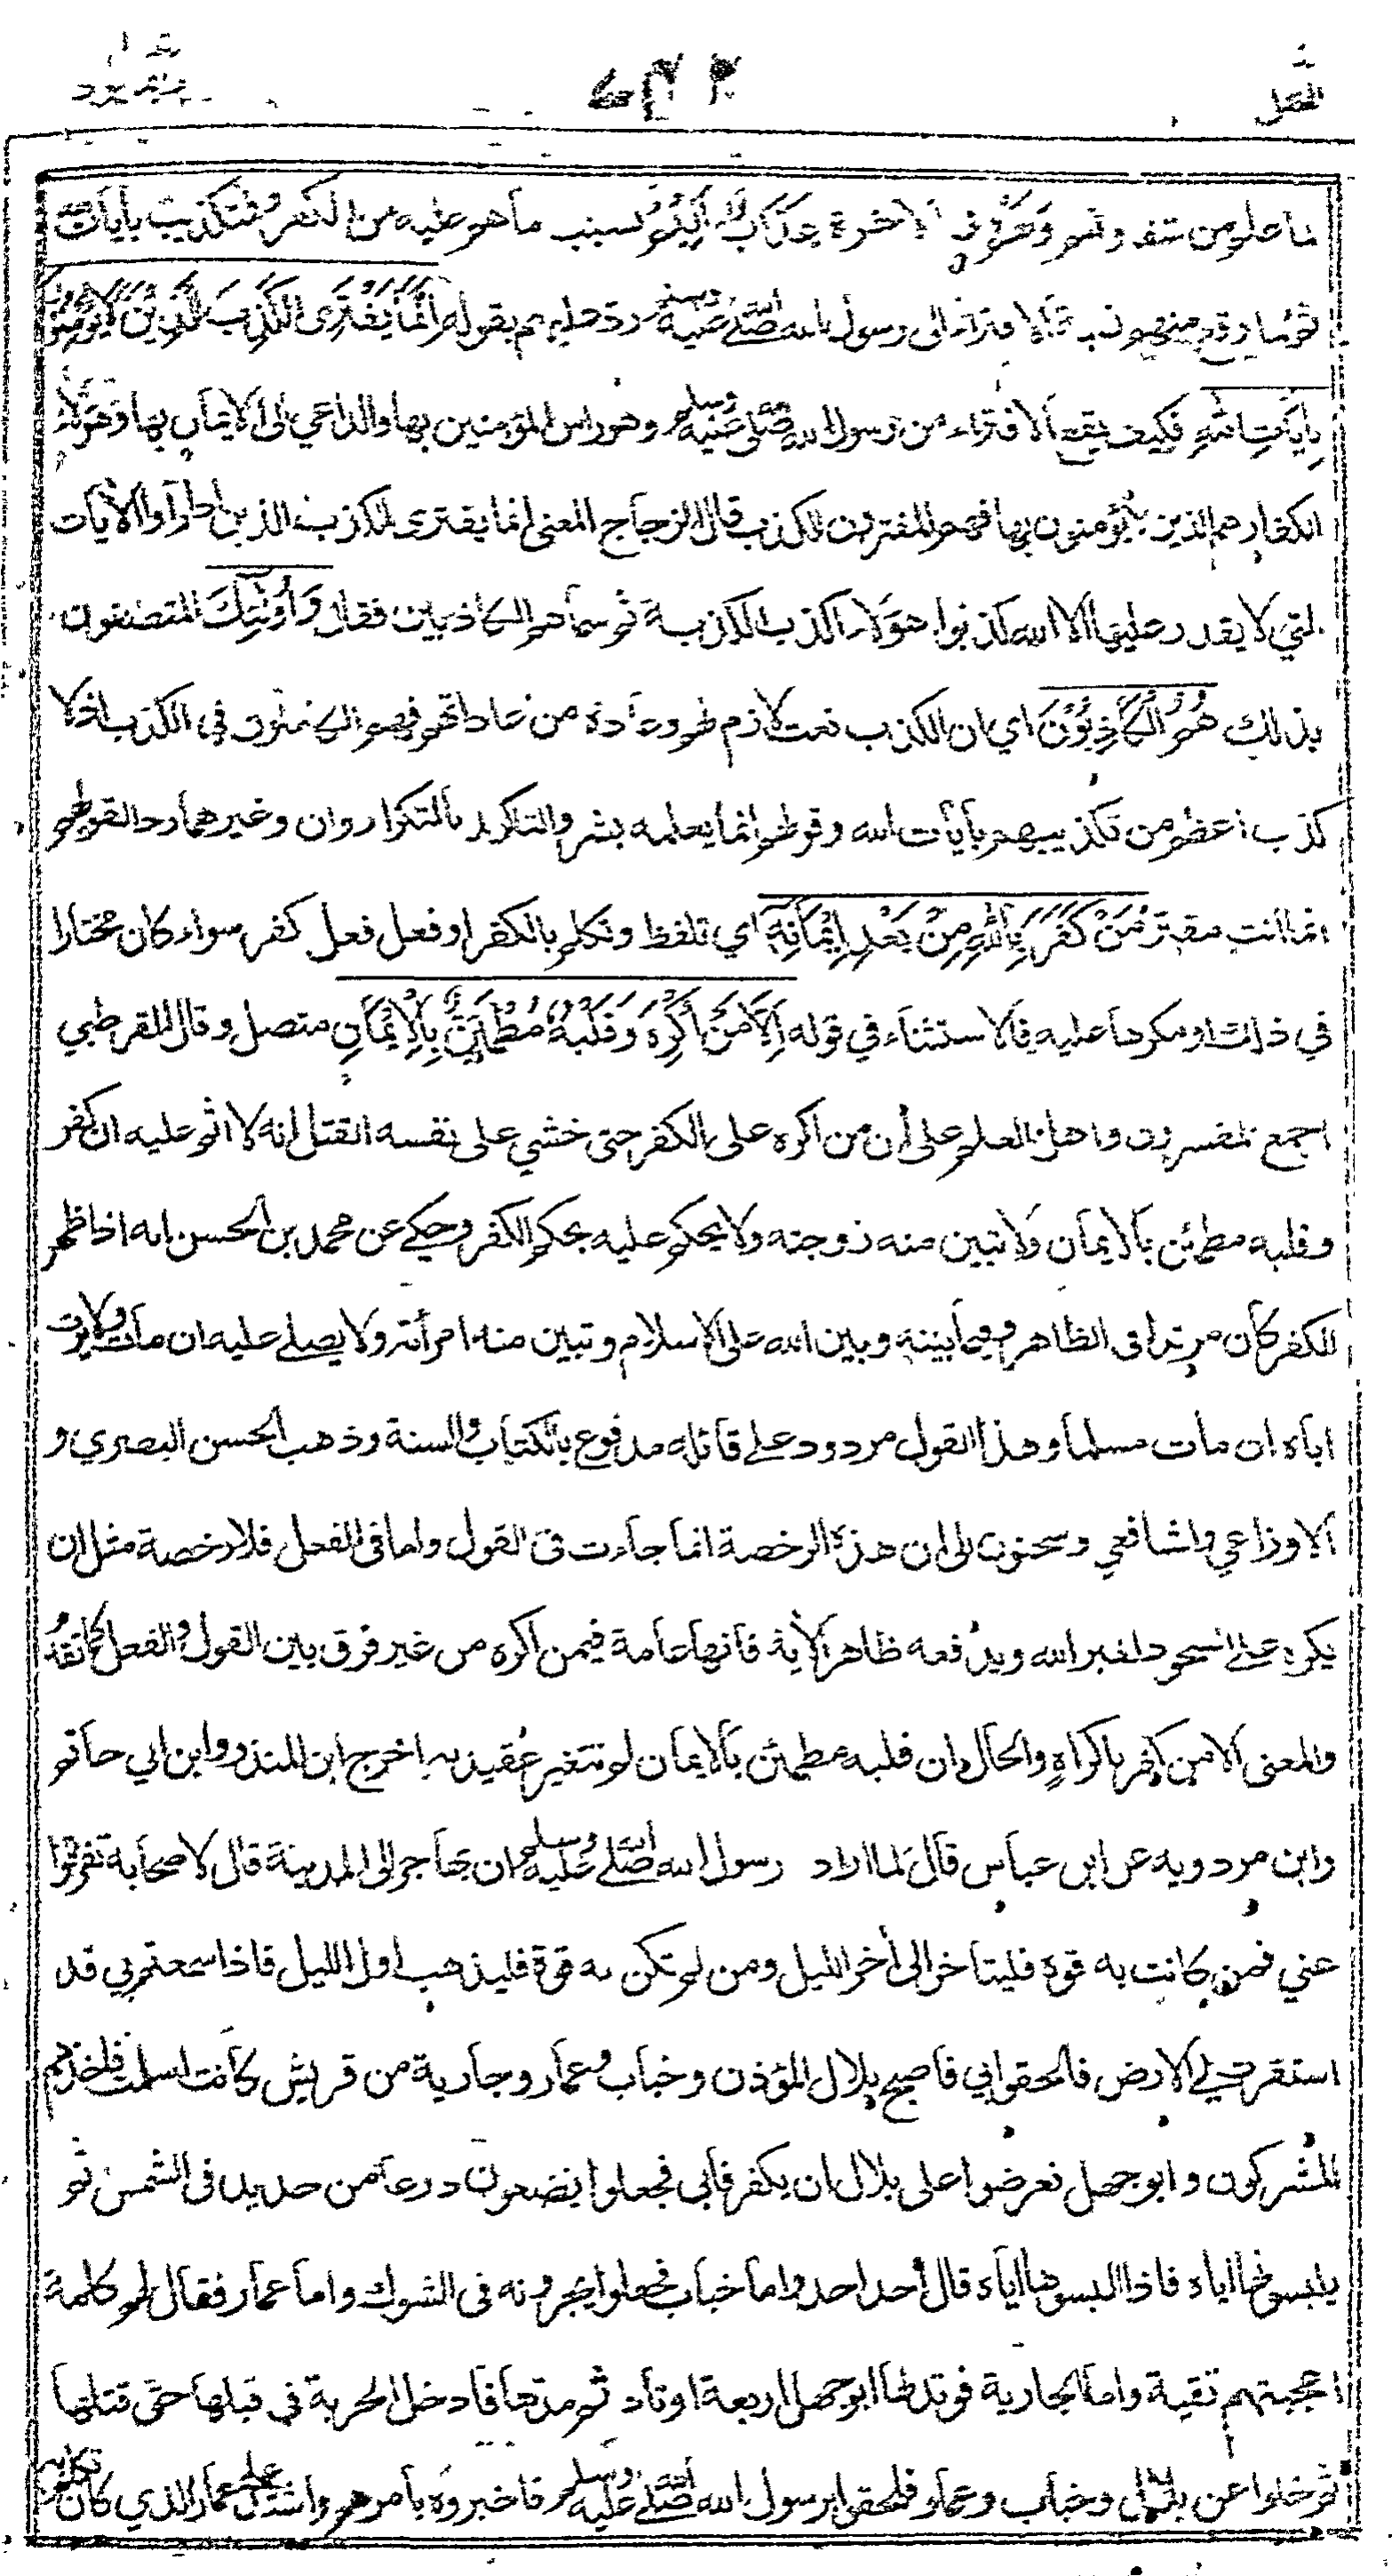 النحل
علم من شقاوتهم ولهم في الآخرة عذاب اليم بسبب ما هو عليه من الكفر والتكذيب بآيات
ثم لما وقع منهم نسبة الافتراء الى رسول الله صلى الله عليه وسلم رد عليهم بقوله انما يفترى الكذب الذين لا يؤمنون
بايات الله فكيف يقع الافتراء من رسول الله صلى الله عليه وسلم وهو راس المؤمنين بها والداعي الى الايمان بها وهؤلاء
الكفار هم الذين لا يؤمنون بها فهم المفترون للكذب قال الزجاج المعنى انما يفترى الكذب الذين اذا رأوا الآيات
التي لا يقدر عليها الا الله كذبوا هؤلاء اكذب الكذبة ثم سماهم الكاذبين فقال واولئك المتصفون
بذلك هم الكاذبون اي ان الكذب نعت لازم لهم وعادة من عاداتهم فهم الكاملون في الكذب اذ لا
كذب اعظم من تكذيبهم بآيات الله وقولهم انما يعلمه بشر والتاكيد بالتكرار وان وغيرهما رد لقولهم
انما انت مفتر من كفر بالله من بعد ايمانه اي تلفظ وتكلم بالكفر او فعل فعل كفر سواء كان مختارا
في ذلك او مكرها عليه فالاستثناء في قوله الا من اكره وقلبه مطمئن بالايمان متصل وقال القرطبي
اجمع المفسرون واهل العلم على أن من اكره على الكفر حتى خشي على نفسه القتل انه لا اثم عليه ان كفر
وقلبه مطمئن بالايمان ولا تبين منه زوجته ولا يحكم عليه بحكم الكفر وحكي عن محمد بن الحسن انه اذا ظهر
الكفر كان مرتدا فى الظاهر وفيما بينه وبين الله على الاسلام وتبين منه امرأته ولا يصلى عليه ان مات ولا يرث
اباه ان مات مسلما وهذا القول مردود على قائله مدفوع بالكتاب والسنة وذهب الحسن البصري و
الاوزاعي والشافعي وسحنون الى ان هذه الرخصة انما جاءت فى القول واما فى الفعل فلا رخصة مثل ان
يكره على السجود لغير الله ويدفعه ظاهر الآية فانها عامة فيمن اكره من غير فرق بين القول والفعل كما تقدم
والمعنى الا من كفر باكراه والحال ان قلبه مطمئن بالايمان لم تتغير عقيدته اخرج ابن المنذر وابن ابي حاتم
وابن مردويه عن ابن عباس قال لما اراد رسول الله صلى الله عليه وسلم ان يهاجر الى المدينة قال لاصحابه تفرقوا
عني فمن كانت به قوة فليتأخر الى أخر الليل ومن لم تكن به قوة فليذهب اول الليل فاذا سمعتم بي قد
استقرت بي الارض فالحقوا بي فاصبح بلال المؤذن وخباب وعمار وجارية من قريش كانت اسلمت فاخذهم
المشركون وابو جهل فعرضوا على بلال ان يكفر فأبى فجعلوا يضعون درعا من حديد فى الشمس ثم
يلبسونها اياه فاذا البسوها اياه قال أحد احد واما خباب فجعلوا يجرونه فى الشوك واما عمار فقال لهم كلمة
اعجبتهم تقية واما الجارية فوتد لها ابو جهل اربعة اوتاد ثم مدها فادخل الحربة في قبلها حتى قتلها
ثم خلوا عن بلال وخباب وعمار فلحقوا برسول الله صلى الله عليه وسلم فاخبروه بامرهم واشتد على عمار الذي كان تكلم به